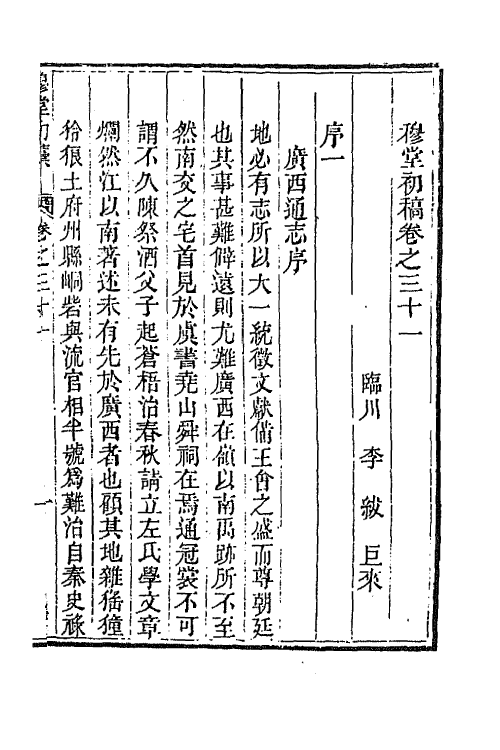 穆堂初稿卷之三十一
臨川 李紱 巨來
序一
廣西通志序
地必有志所以大一統徵文獻備王會之盛而尊朝廷
也其事甚難僻遠則尤難廣西在嶺以南禹跡所不至
然南交之宅首見於虞書堯山舜祠在焉通冠裳不可
謂不久陳祭酒父子起蒼梧治春秋請立左氏學文章
爛然江以南著述未有先於廣西者也顧其地雜猺獞
狑狼土府州縣峒砦與流官相半號爲難治自秦史祿
穆堂初稾 卷之三十一 一